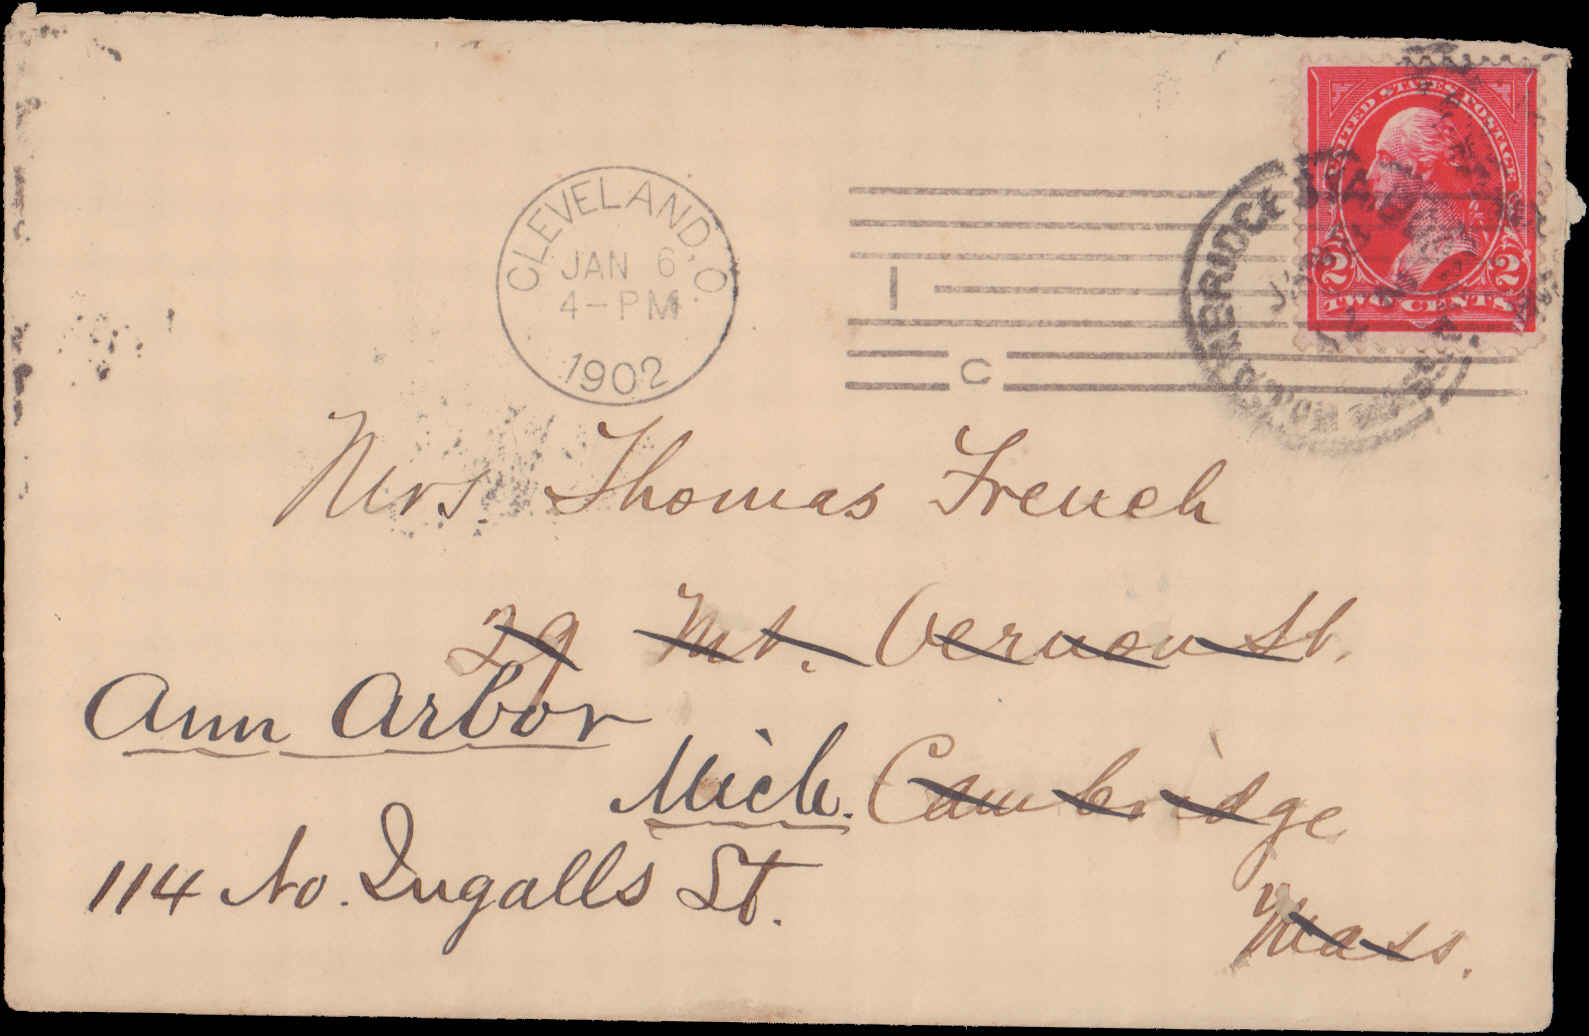 UNITED STATES POSTAGE
2 2
TWO CENTS
CLEVELAND, O.
JAN 6
4-PM
1902
1
C
Mrs. Thomas French
29 Mt. Vernon St.
Ann Arbor
Mich. Cambridge
114 No. Ingalls St.
Mass.